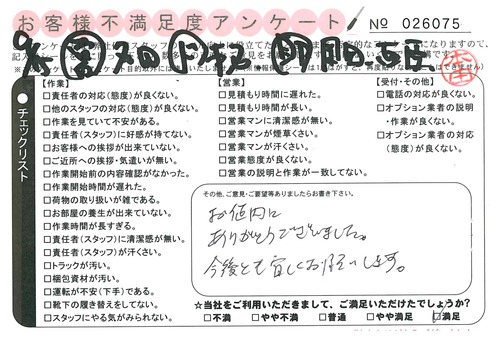 お客様不満足度アンケート
No 026075
チェックリスト
【作業】
□責任者の対応(態度)が良くない。
□他のスタッフの対応(態度)が良くない。
□作業を見ていて不安がある。
□責任者(スタッフ)に好感が持てない。
□お客様への挨拶が出来ていない。
□ご近所への挨拶・気遣いが無い。
□作業開始前の内容確認がなかった。
□作業開始時間が遅れた。
□荷物の取り扱いが雑である。
□お部屋の養生が出来ていない。
□作業時間が長すぎる。
□責任者(スタッフ)に清潔感が無い。
□責任者(スタッフ)が汗くさい。
□トラックが汚い。
□梱包資材が汚い。
□運転が不安(下手)である。
□靴下の履き替えをしてない。
□スタッフにやる気がみられない。
【営業】
□見積もり時間に遅れた。
□見積もり時間が長い。
□営業マンに清潔感が無い。
□営業マンが煙草くさい。
□営業マンが汗くさい。
□営業態度が良くない。
□営業の説明と作業が一致してない。
【受付・その他】
□電話の対応が良くない。
□オプション業者の説明
・作業が良くない。
□オプション業者の対応
(態度)が良くない。
その他、ご意見・ご要望等ありましたらお書き下さい。
ありがとうございました。
今後とも宜しくお願いします。
☆当社をご利用いただきまして、ご満足いただけたでしょうか?
□不満 □やや不満 □普通 □やや満足 □満足